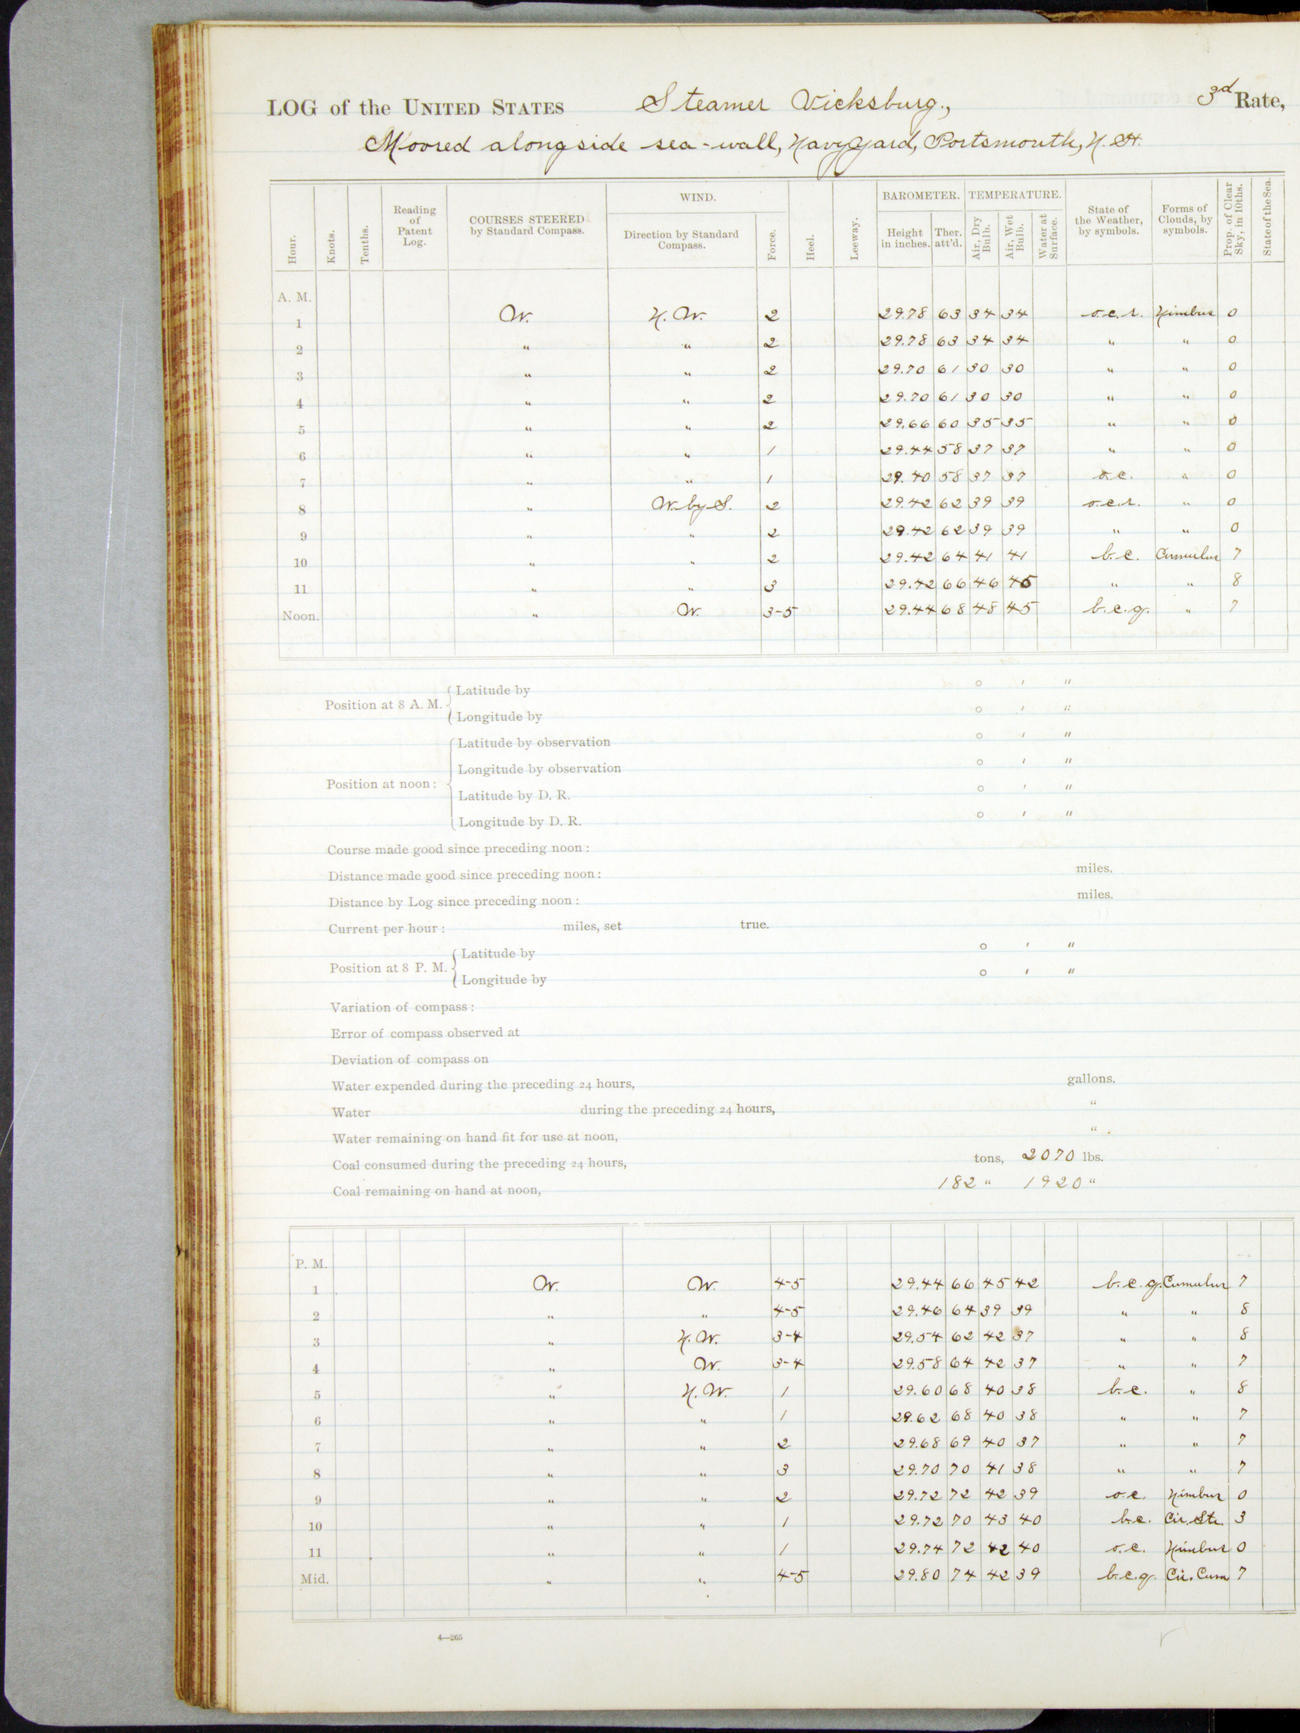 LOG of the UNITED STATES Steamer Vicksburg., 3rd Rate,
Moored alongside sea-wall, Navy Yard, Portsmouth, N. H.
Hour. Knots. Tenths. Reading of Patent Log. COURSES STEERED by Standard Compass. WIND. Direction by Standard Compass. Force. Heel. Leeway. BAROMETER. Height in inches. Ther. att'd. TEMPERATURE. Air, Dry Bulb. Air, Wet Bulb. Water at Surface. State of the Weather, by symbols. Forms of Clouds, by symbols. Prop. of Clear Sky, in 10ths. State of the Sea.
A. M.
1 W. N. W. 2 29.78 63 34 34 o.c.r. Nimbus 0
2 " " 2 29.78 63 34 34 " " 0
3 " " 2 29.70 61 30 30 " " 0
4 " " 2 29.70 61 30 30 " " 0
5 " " 2 29.66 60 35 35 " " 0
6 " " 1 29.44 58 37 37 " " 0
7 " " 1 29.40 58 37 37 o.c. " 0
8 " W. by S. 2 29.42 62 39 39 o.c.r. " 0
9 " " 2 29.42 62 39 39 " " 0
10 " " 2 29.42 64 41 41 b.c. Cumulus 7
11 " " 3 29.42 66 46 45 " " 8
Noon. " W. 3-5 29.44 68 48 45 b.c.g. " 7
Position at 8 A. M. Latitude by ° ' "
Longitude by ° ' "
Position at noon: Latitude by observation ° ' "
Longitude by observation ° ' "
Latitude by D. R. ° ' "
Longitude by D. R. ° ' "
Course made good since preceding noon:
Distance made good since preceding noon: miles.
Distance by Log since preceding noon: miles.
Current per hour: miles, set true.
Position at 8 P. M. Latitude by ° ' "
Longitude by ° ' "
Variation of compass:
Error of compass observed at
Deviation of compass on
Water expended during the preceding 24 hours, gallons.
Water during the preceding 24 hours, "
Water remaining on hand fit for use at noon, "
Coal consumed during the preceding 24 hours, tons, 2070 lbs.
Coal remaining on hand at noon, 182 " 1920 "
P. M.
1 W. W. 4-5 29.44 66 45 42 b.c.g. Cumulus 7
2 " " 4-5 29.46 64 39 39 " " 8
3 " N. W. 3-4 29.54 62 42 37 " " 8
4 " W. 3-4 29.58 64 42 37 " " 7
5 " N. W. 1 29.60 68 40 38 b.c. " 8
6 " " 1 29.62 68 40 38 " " 7
7 " " 2 29.68 69 40 37 " " 7
8 " " 3 29.70 70 41 38 " " 7
9 " " 2 29.72 72 42 39 o.c. Nimbus 0
10 " " 1 29.72 70 43 40 b.c. Cir. Str. 3
11 " " 1 29.74 72 42 40 o.c. Nimbus 0
Mid. " " 4-5 29.80 74 42 39 b.c.g. Cir. Cum 7
4—265